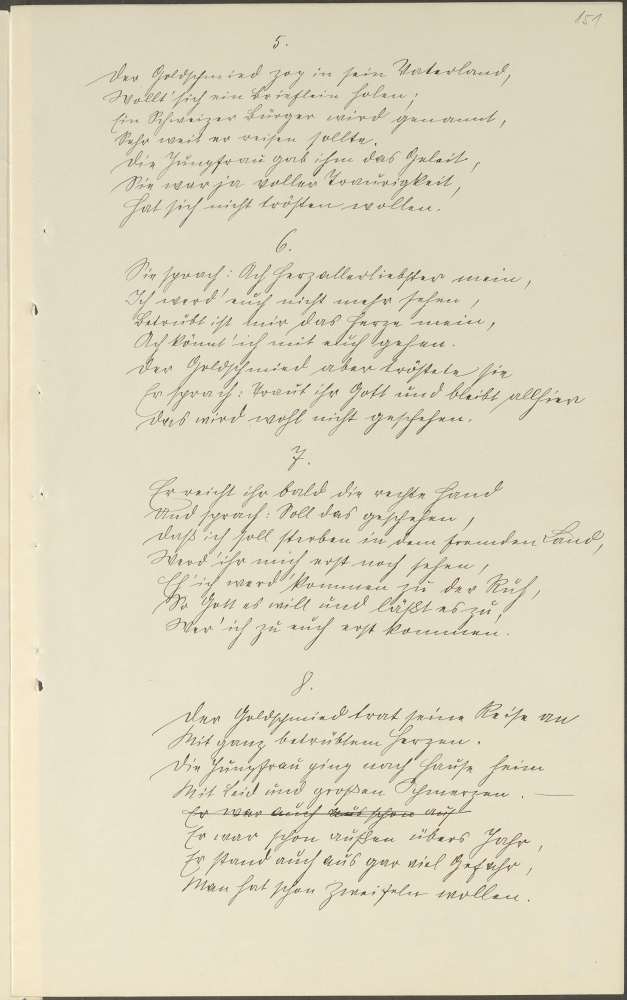 151
5.
Der Goldschmied zog in sein Vaterland,
Wollt' sich ein Brieflein holen;
Ein Schweizer Bürger wird genannt,
Sehr weit er reisen sollte.
Die Jungfrau gab ihm das Geleit,
Sie war ja voller Traurigkeit,
Hat sich nicht trösten wollen.
6.
Sie sprach: Ach Herzallerliebster mein,
Ich werd' euch nicht mehr sehen,
Betrübt ist mir das Herze mein,
Ach könnt' ich mit euch gehen.
Der Goldschmied aber tröstete sie
Er sprach: Traut ihr Gott und bleibt allhier
Das wird wohl nicht geschehen.
7.
Er reicht ihr bald die rechte Hand
Und sprach: Soll das geschehen,
Daß ich soll sterben in dem fremden Land,
Werd' ihr mich erst noch sehen,
Eh' ich werd' kommen zu der Ruh,
So Gott es will und läßt es zu,
Wer' ich zu euch erst kommen.
8.
Der Goldschmied trat seine Reise an
Mit ganz betrübtem Herzen.
Die Jungfrau ging nach Hause heim
Mit Leid und großen Schmerzen. —
Er war auch schon auf
Er war schon außen übers Jahr,
Er stand auch aus gar viel Gefahr,
Man hat schon zweifeln wollen.